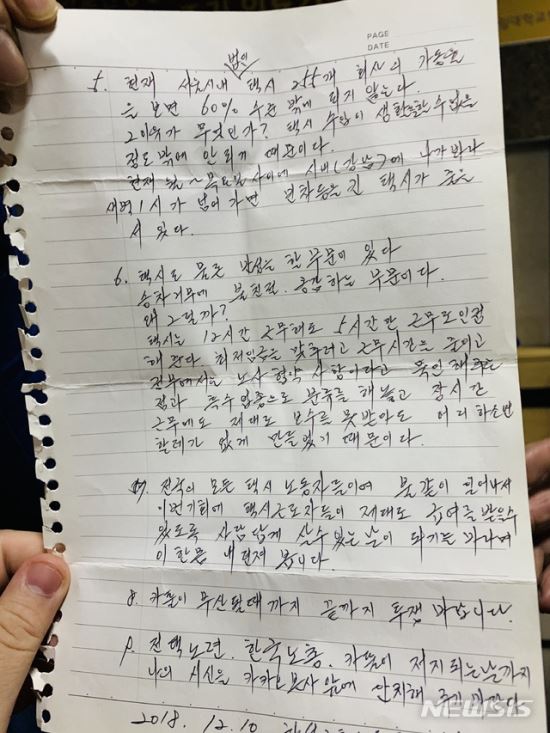 PAGE
DATE
법인
5. 현재 서울시내 택시 255개 회사의 가동율
을 보면 60% 수준 밖에 되지 않는다.
그 이유가 무엇인가? 택시 수입이 생활할수 없을
정도 밖에 안되기 때문이다.
현재 월~목요일 사이에 시내(강남)에 나가봐라
새벽 1시가 넘어가면 빈차등을 킨 택시가 줄을
서 있다.
6. 택시도 물론 반성을 할 부문이 있다
승차거부에 불친절. 공감하는 부문이다.
왜 그럴까?
택시는 12시간 근무해도 5시간만 근무로 인정
해 준다. 최저임금을 맞추려고 근무시간을 줄이고
정부에서는 노사 협약 사항이라고 묵인 해주는
점과 특수업종으로 분류를 해놓고 장시간
근무에도 제대로 보수를 못받아도 어디 하소연
할데가 없게 만들었기 때문이다.
7. 전국의 모든 택시 노동자들이여 불같이 일어나서
이번기회에 택시근로자들이 제대로 급여를 받을수
있도록 사람답게 살수있는 날이 되기를 바라며
이 한몸 내던져 봅니다.
8. 카풀이 무산될때 까지 끝까지 투쟁 바랍니다.
9. 전택노련. 한국노총. 카풀이 저지되는날까지
나의 시신을 카카오 본사 앞에 안치해 주기 바란다
2018. 12. 10
NEWSIS